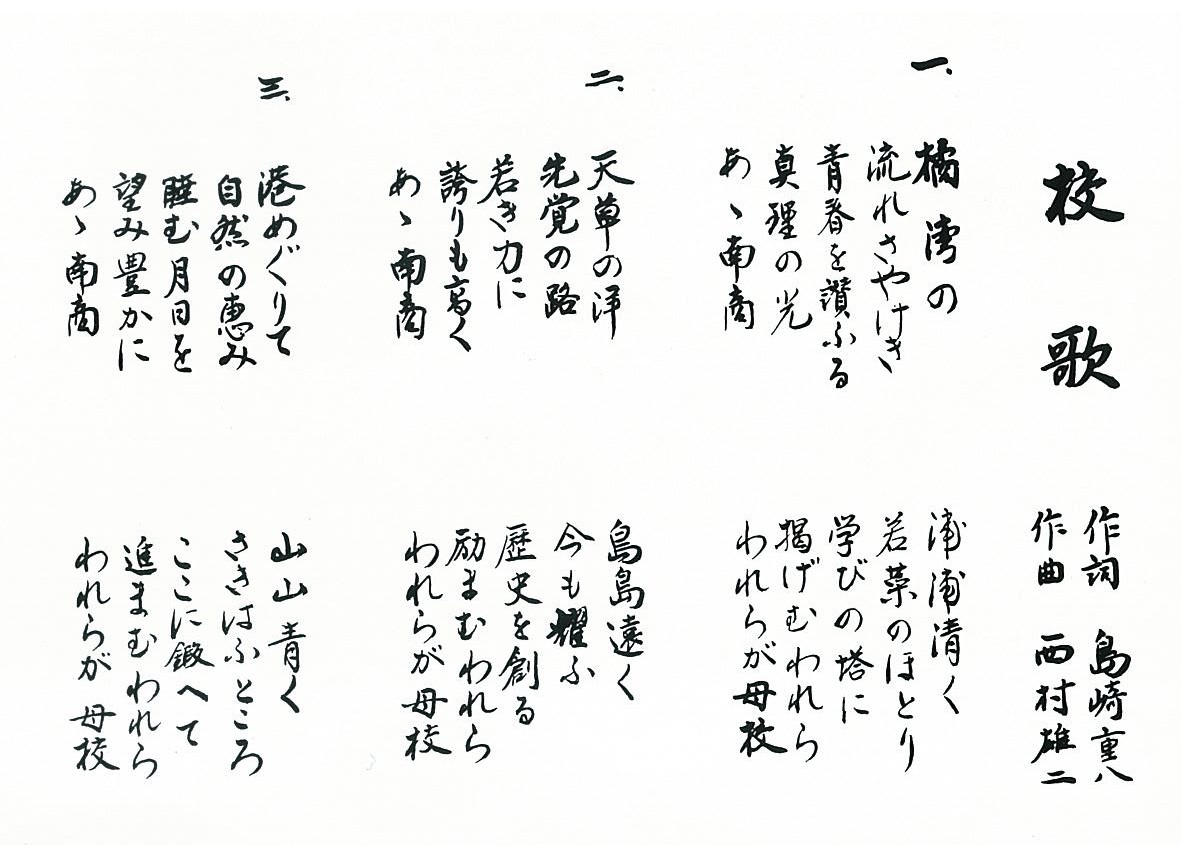 校歌
作詞 島崎重八
作曲 西村雄二
一、橘湾の 浦浦清く
流れさやけき 若葉のほとり
青春を讃ふる 学びの塔に
真理の光 掲げむわれら
あゝ南商 われらが母校
二、天草の洋 島島遠く
先覚の路 今も耀ふ
若き力に 歴史を創る
誇りも高く 励まむわれら
あゝ南商 われらが母校
三、港めぐりて 山山青く
自然の恵み さきはふところ
睦む月日を ここに鍛へて
望み豊かに 進まむわれら
あゝ南商 われらが母校